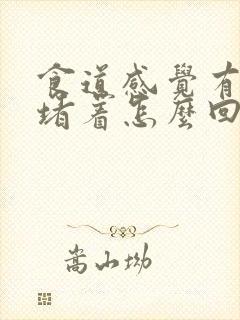 食道感覺有
堵著怎麼回
嵩山坳